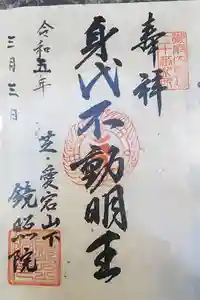 奉拝
身代不動明王
令和五年
三月三日
芝・愛宕山下
鏡照院